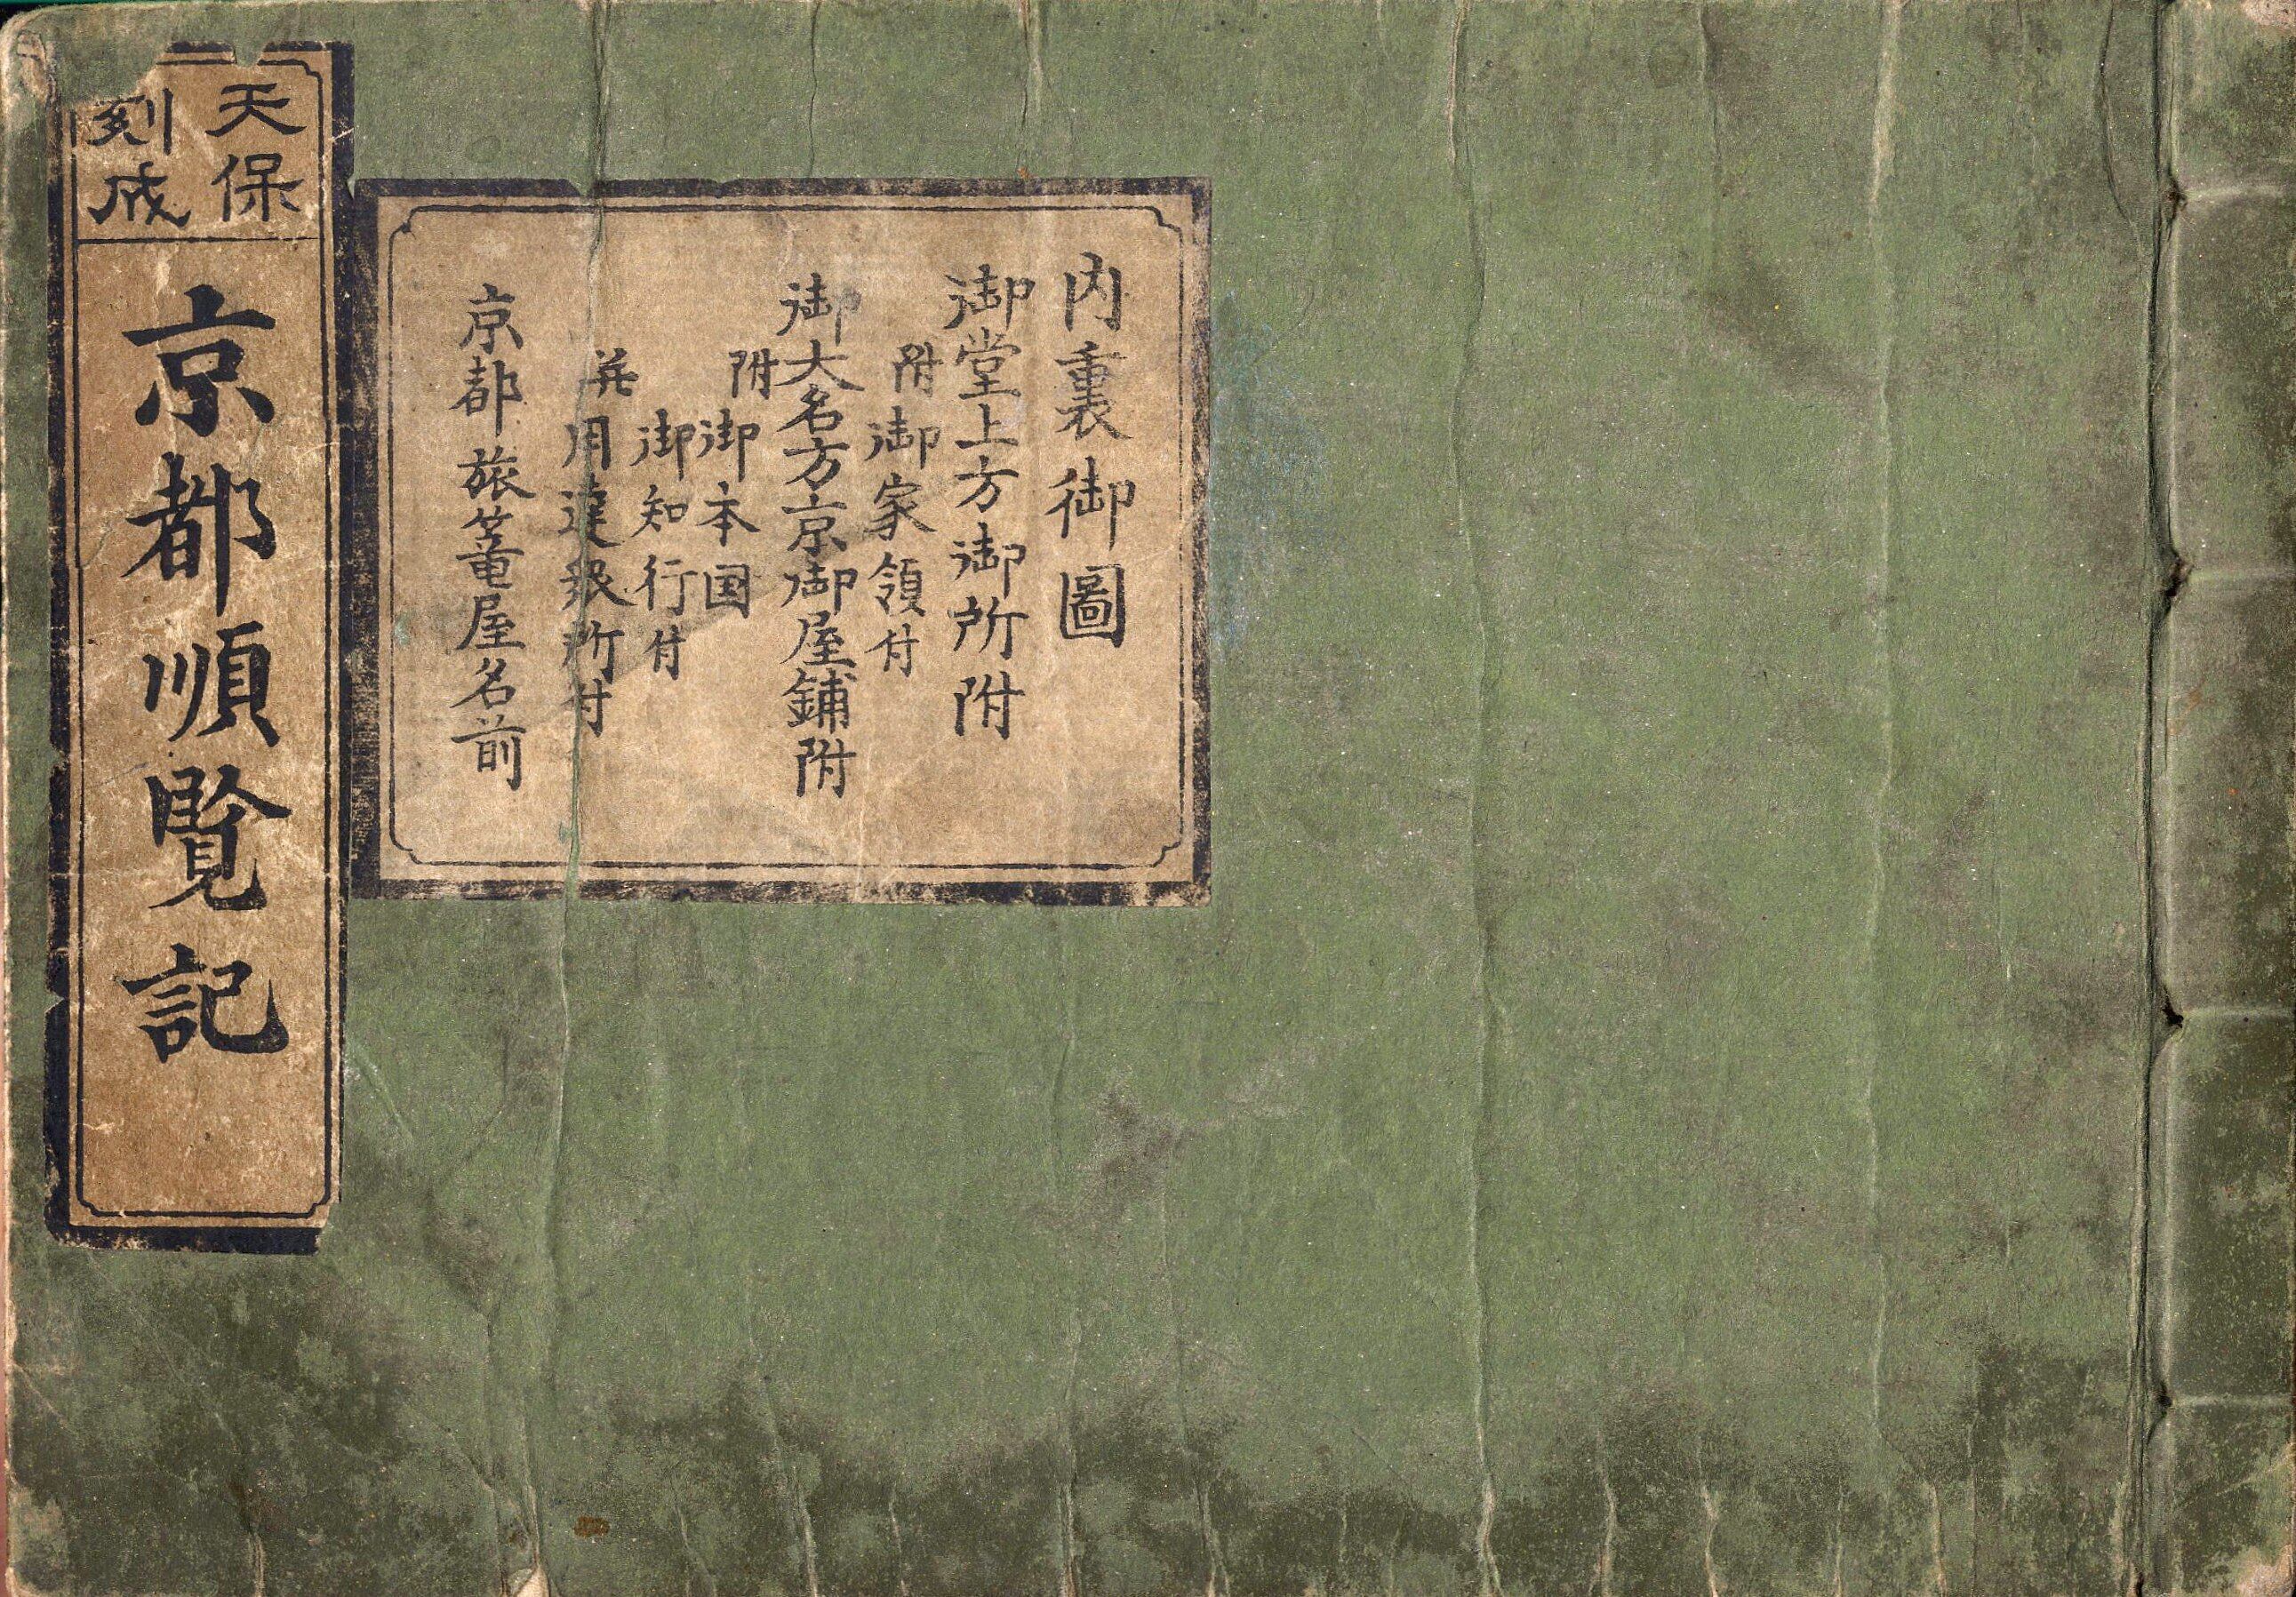 天保
刻成
京都順覧記
内裏御圖
御堂上方御所附
附御家領付
御大名方京御屋鋪附
附御本国
御知行付
并用達衆所付
京都旅篭屋名前